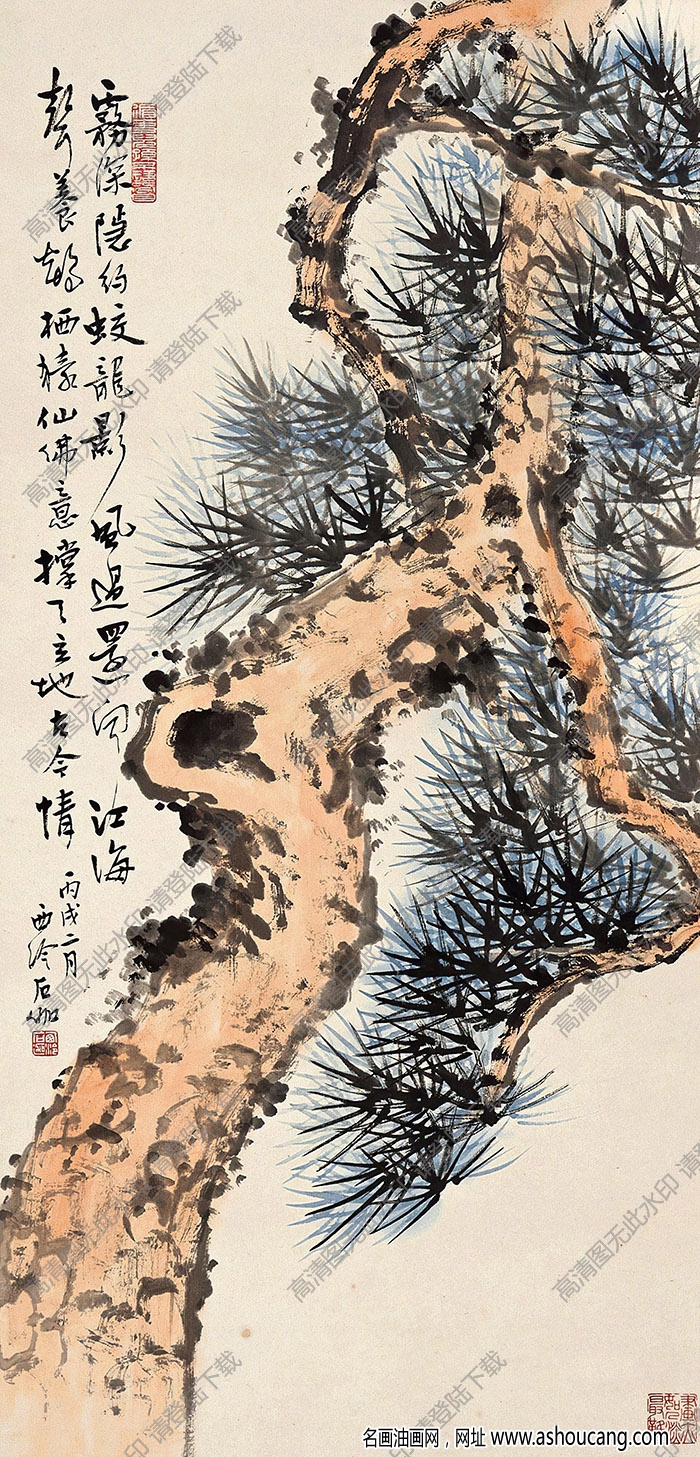 霧深隱約蛟龍影風過還聞江海
聲養鶴栖猿仙佛意撑天立地古今情
丙戌二月
西泠石伽
高清图无此水印 请登陆下载
名画油画网，网址 www.ashoucang.com